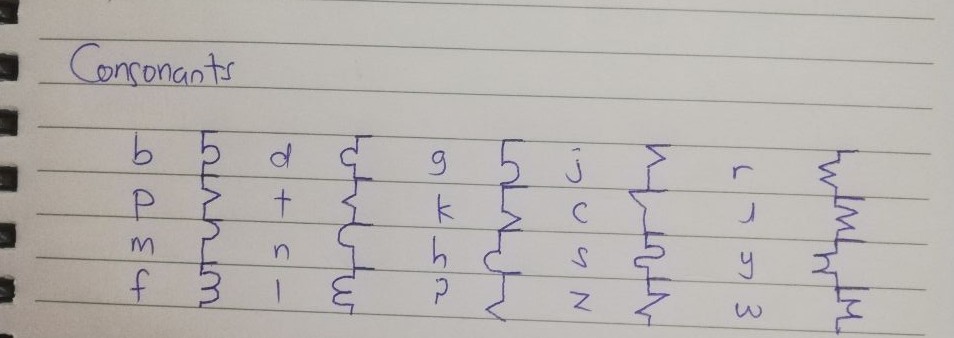 Consonants
b d g j r
p t k c ɹ
m n h s y
f l ? z ω